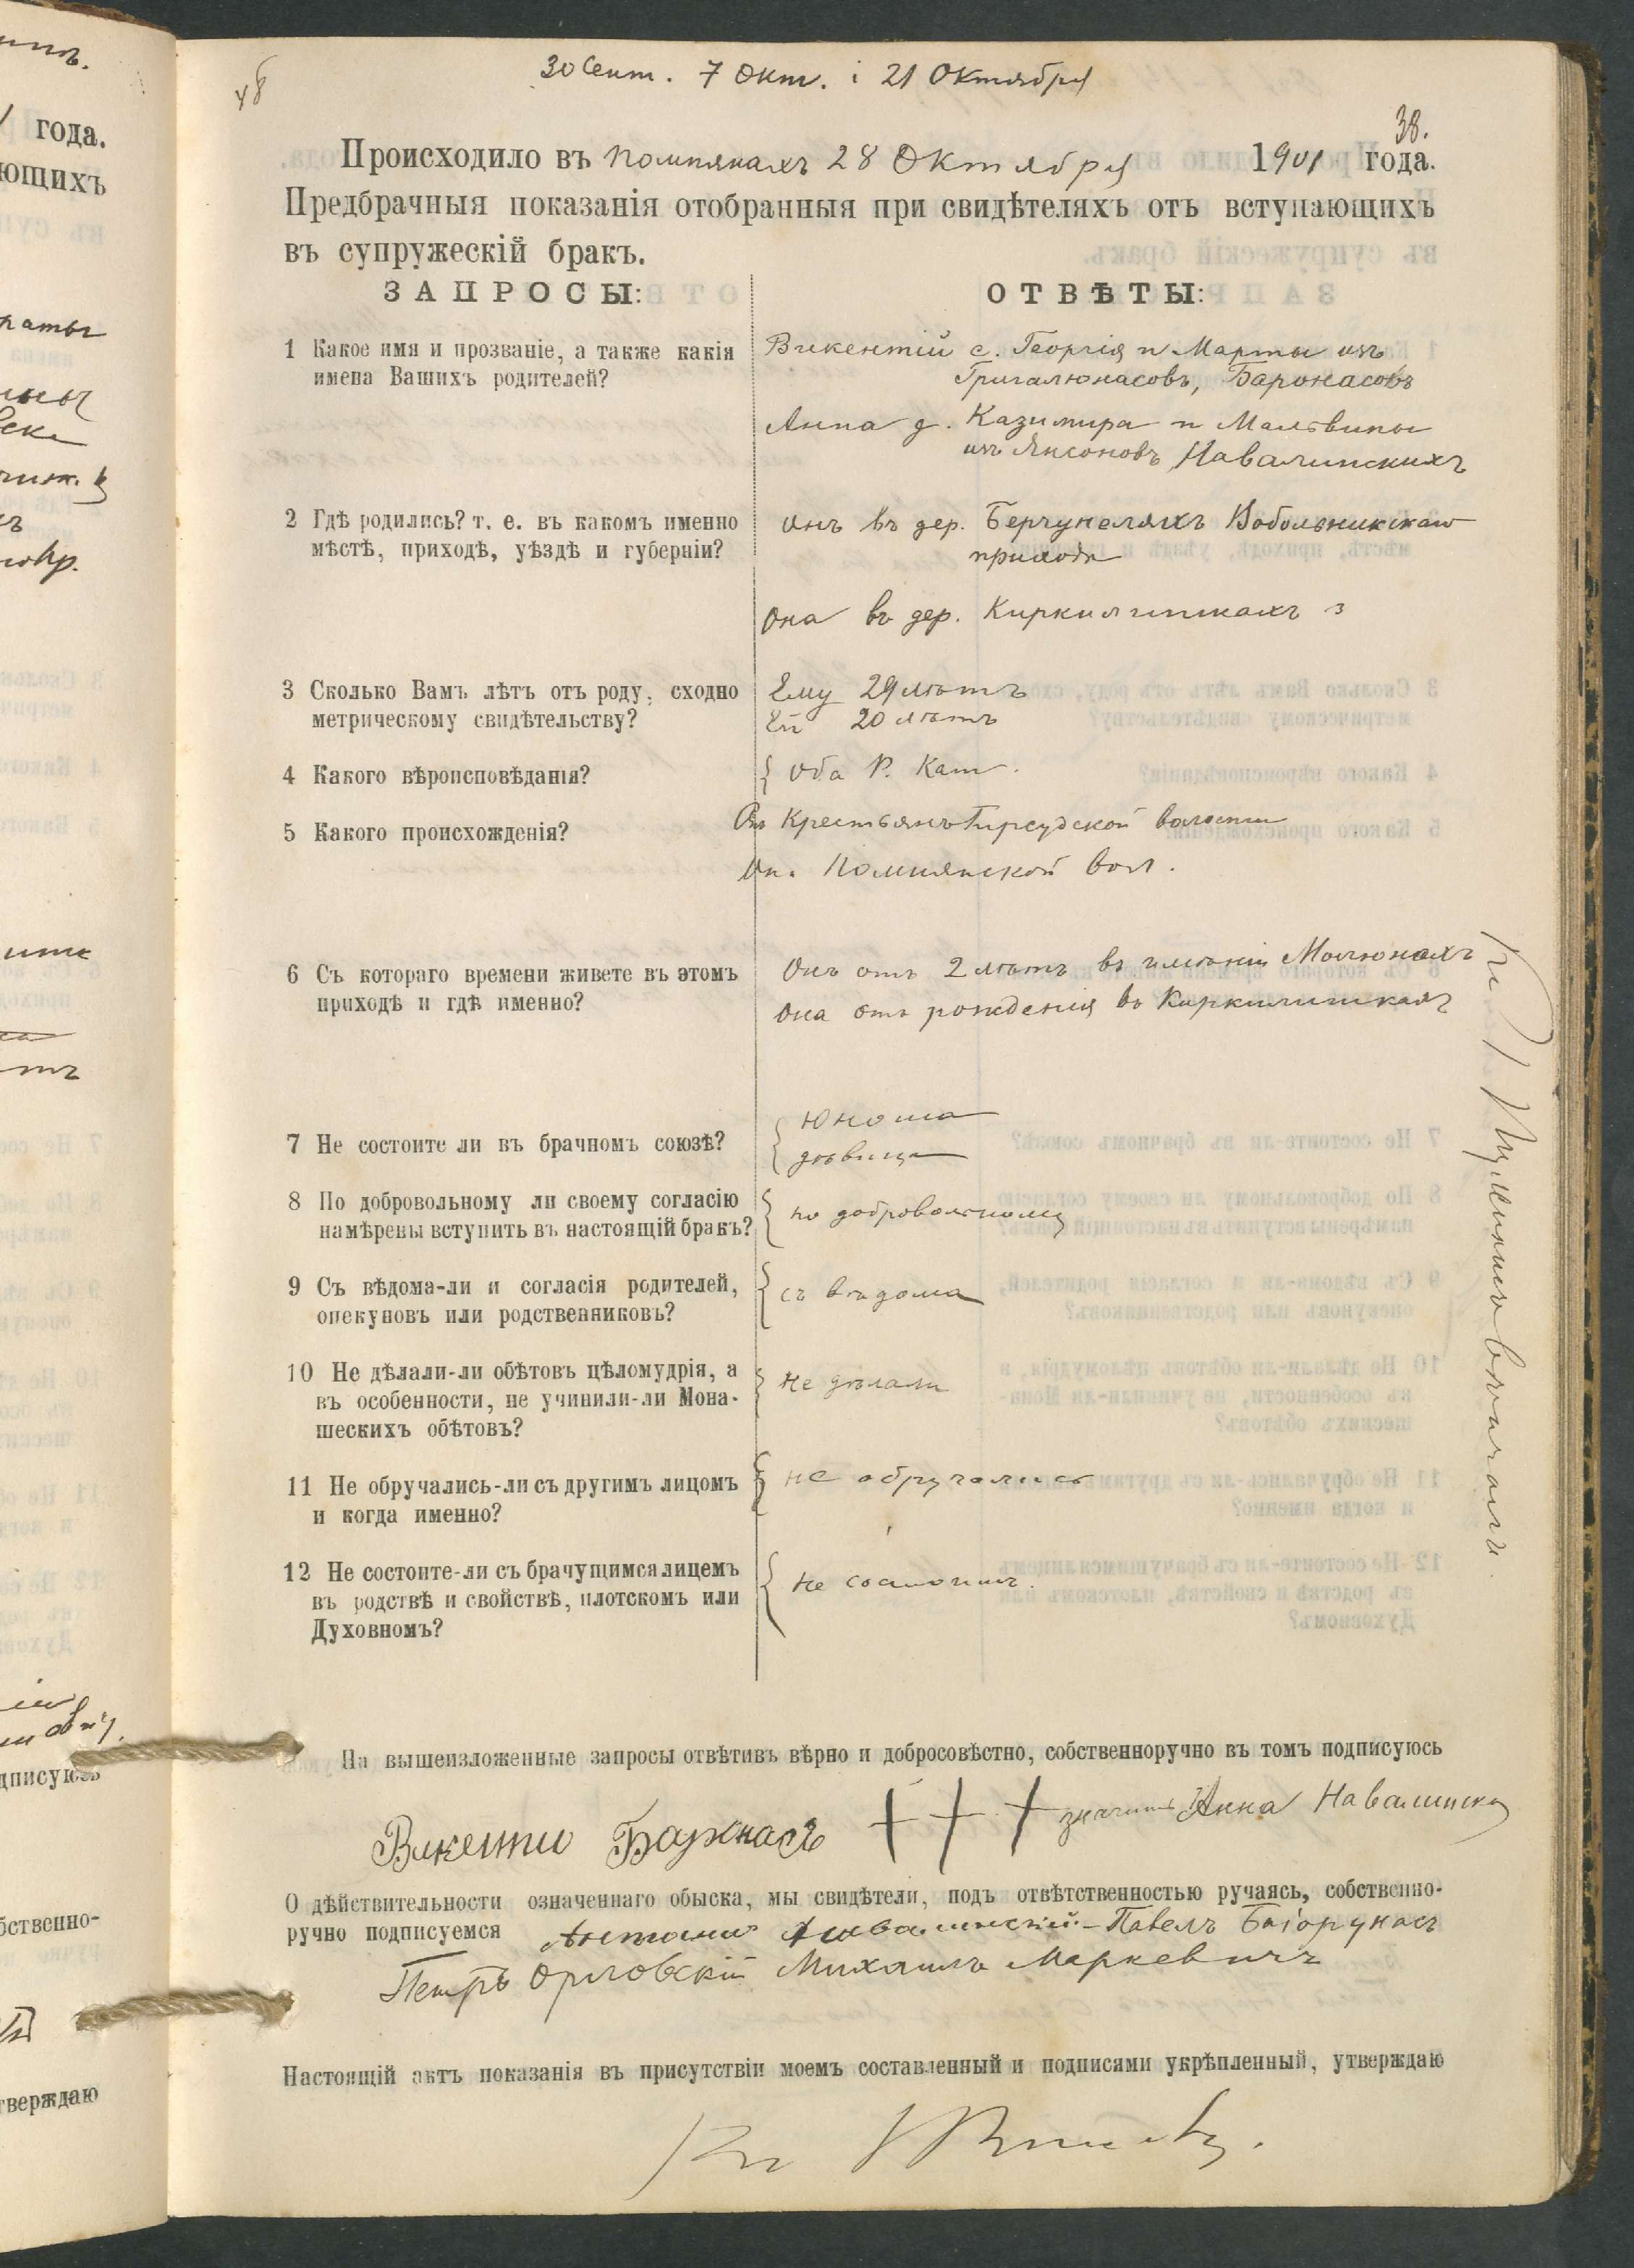 30 Сент. 7 Окт. і 21 Октября
38.
Происходило въ Помпянахъ 28 Октября 1901 года.
Предбрачныя показанія отобранныя при свидѣтеляхъ отъ вступающихъ
въ супружескій бракъ.
ЗАПРОСЫ:
ОТВѢТЫ:
1 Какое имя и прозваніе, а также какія
имена Вашихъ родителей?
Викентій с. Георгія и Марты изъ
Григалюнасовъ, Баронасовъ
Анна д. Казимира и Мальвины
изъ Янсоновъ Навалинскихъ
2 Гдѣ родились? т. е. въ какомъ именно
мѣстѣ, приходѣ, уѣздѣ и губерніи?
Онъ въ дер. Берчунеляхъ Вобольникскаго
прихода
Она въ дер. Киркилишкахъ
3 Сколько Вамъ лѣтъ отъ роду, сходно
метрическому свидѣтельству?
Ему 29 лѣтъ
Ей 20 лѣтъ
4 Какого вѣроисповѣданія?
Оба Р. Кат.
5 Какого происхожденія?
Крестьянъ Гирсудской волости
Помпянской вол.
6 Съ котораго времени живете въ этомъ
приходѣ и гдѣ именно?
Онъ отъ 2 лѣтъ въ имѣніи Молюнахъ
Она отъ рожденія въ Киркилишкахъ
7 Не состоите ли въ брачномъ союзѣ?
Юноша
дѣвица
8 По добровольному ли своему согласію
намѣрены вступить въ настоящій бракъ?
по добровольному
9 Съ вѣдома-ли и согласія родителей,
опекуновъ или родственниковъ?
съ вѣдома
10 Не дѣлали-ли обѣтовъ цѣломудрія, а
въ особенности, не учинили-ли Мона-
шескихъ обѣтовъ?
не дѣлали
11 Не обручались-ли съ другимъ лицомъ
и когда именно?
не обручались
12 Не состоите-ли съ брачущимся лицемъ
въ родствѣ и свойствѣ, плотскомъ или
Духовномъ?
не состоитъ.
На вышеизложенные запросы отвѣтивъ вѣрно и добросовѣстно, собственноручно въ томъ подписуюсь
+++ значитъ Анна Навалинска
О дѣйствительности означеннаго обыска, мы свидѣтели, подъ отвѣтственностью ручаясь, собственно-
ручно подписуемся Павелъ
Петръ Орловскій Михаилъ Маркевичъ
Настоящій актъ показанія въ присутствіи моемъ составленный и подписями укрѣпленный, утверждаю